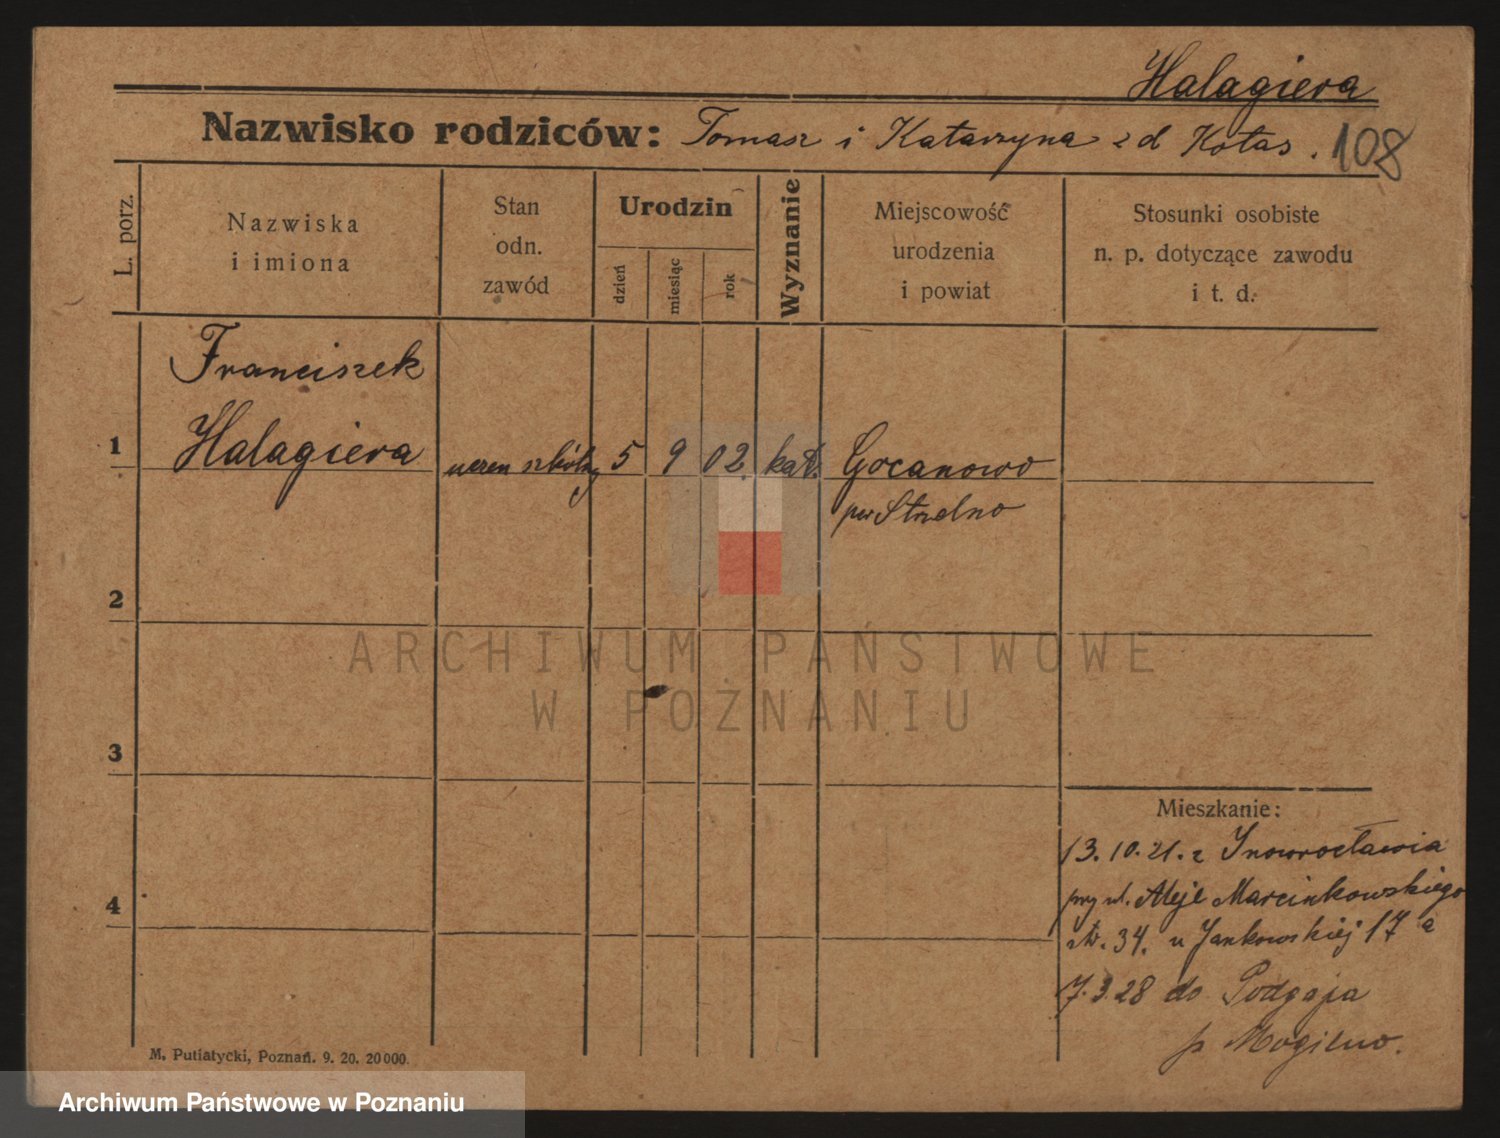 Halagiera
Nazwisko rodziców: Tomasz i Katarzyna z d Kotas. 108
L. porz.
Nazwiska
i imiona
Stan
odn.
zawód
Urodzin
dzień
miesiąc
rok
Wyznanie
Miejscowość
urodzenia
i powiat
Stosunki osobiste
n. p. dotyczące zawodu
i t. d.
Franciszek
1 Halagiera uczen szkólny 5 9 02. kat. Gocanowo
pw Strzelno
2
ARCHIWUM PAŃSTWOWE
W POZNANIU
3
Mieszkanie:
13.10.21. z Inowrocławia
przy ul. Aleje Marcinkowskiego
4
34. u Jankowskiej 17a
7.3.28 do Podgaja
p Mogilno.
M. Putiatycki, Poznań. 9. 20. 20000.
Archiwum Państwowe w Poznaniu